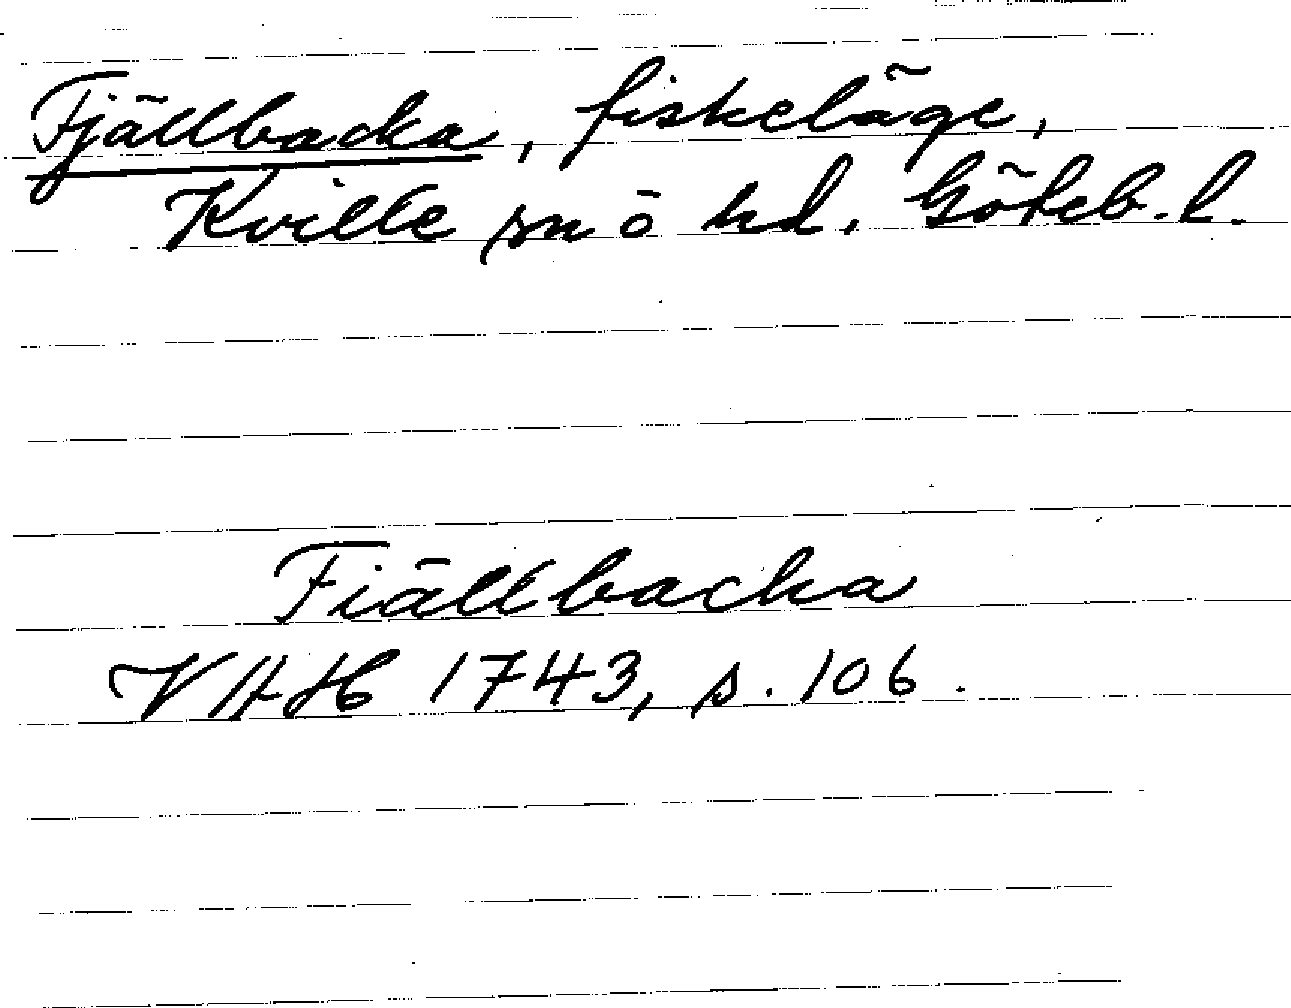 Fjällbacka, fiskeläge,
Kville sn o hd. Göteb. l.
Fiällbacka
VAH 1743, s. 106.